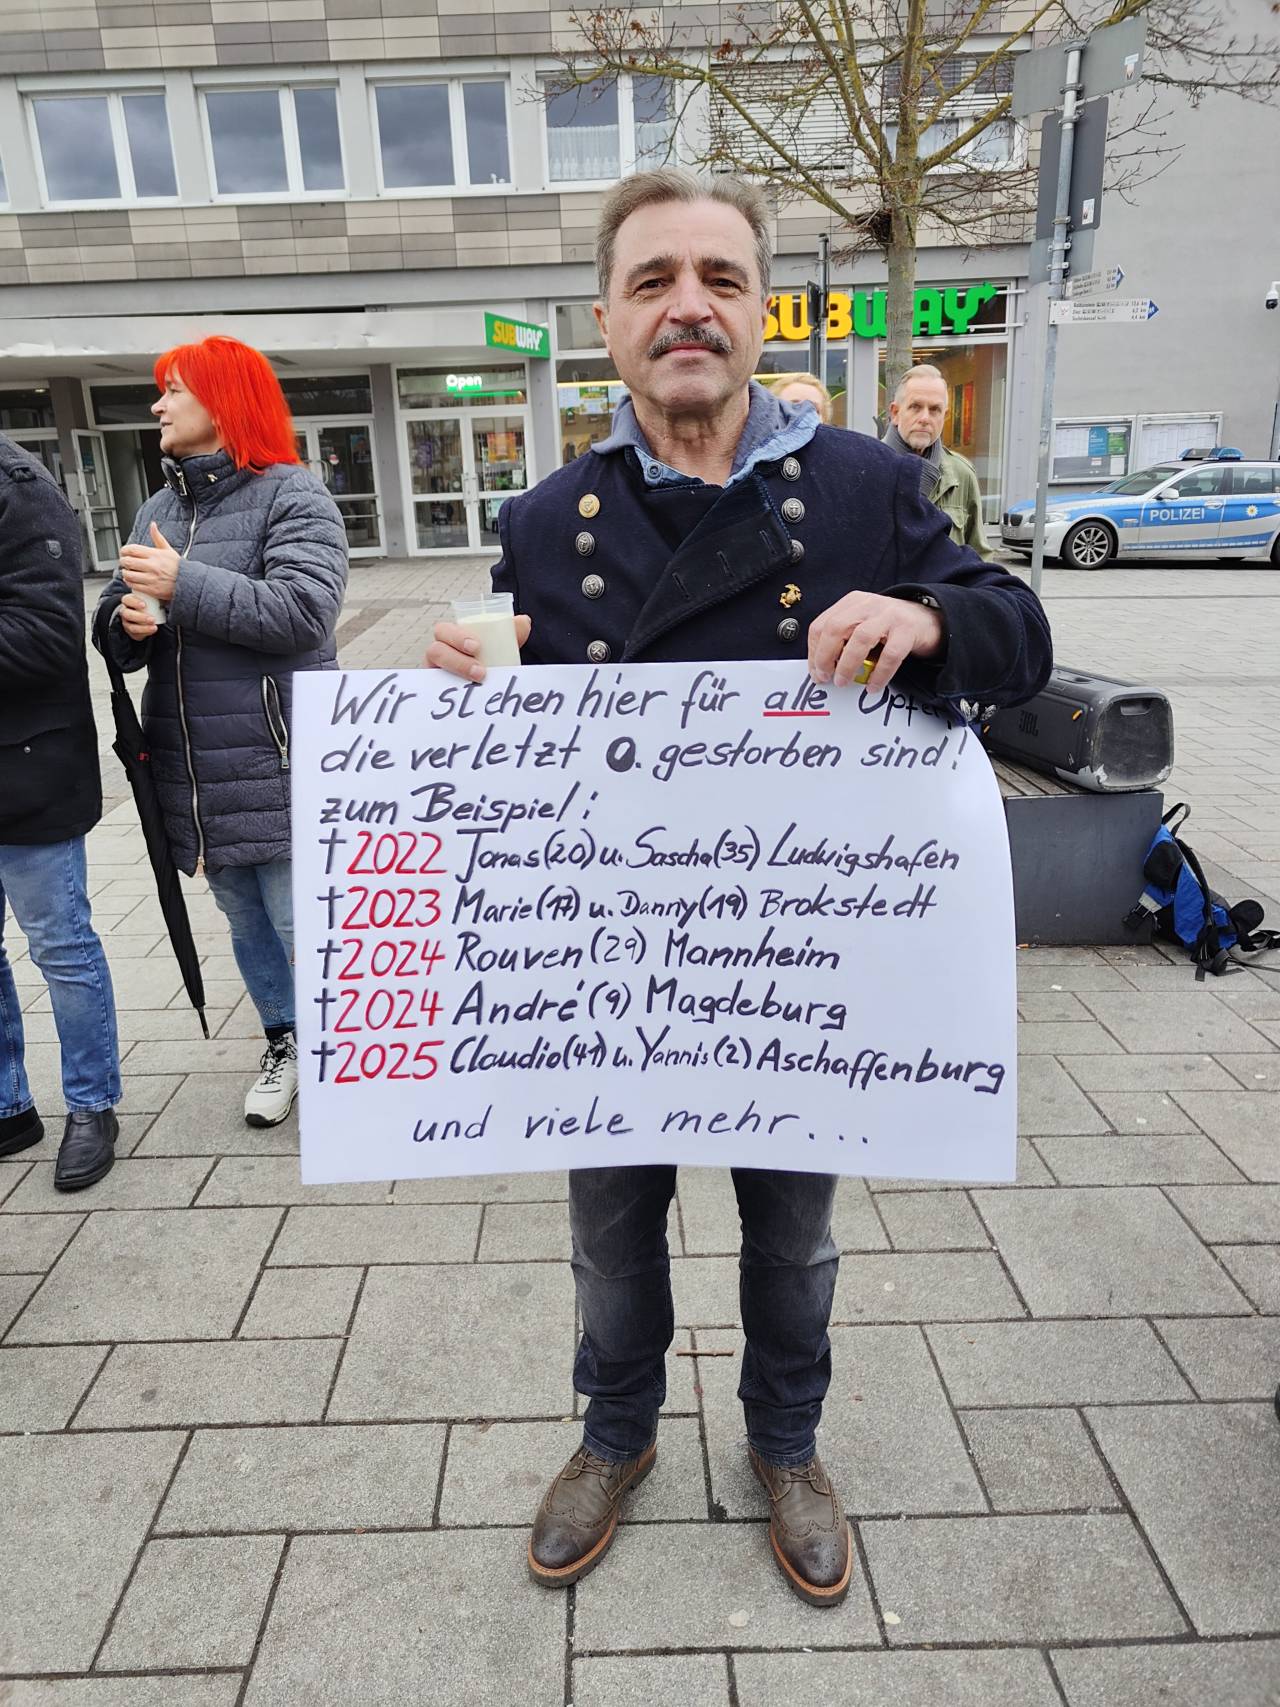 SUBWAY
SUBWAY
Open
POLIZEI
JBL
Wir stehen hier für alle Opfer,
die verletzt o. gestorben sind!
zum Beispiel:
†2022 Jonas(20) u. Sascha(35) Ludwigshafen
†2023 Marie(17) u. Danny(19) Brokstedt
†2024 Rouven(29) Mannheim
†2024 André(9) Magdeburg
†2025 Claudio(41) u. Yannis(2) Aschaffenburg
und viele mehr...